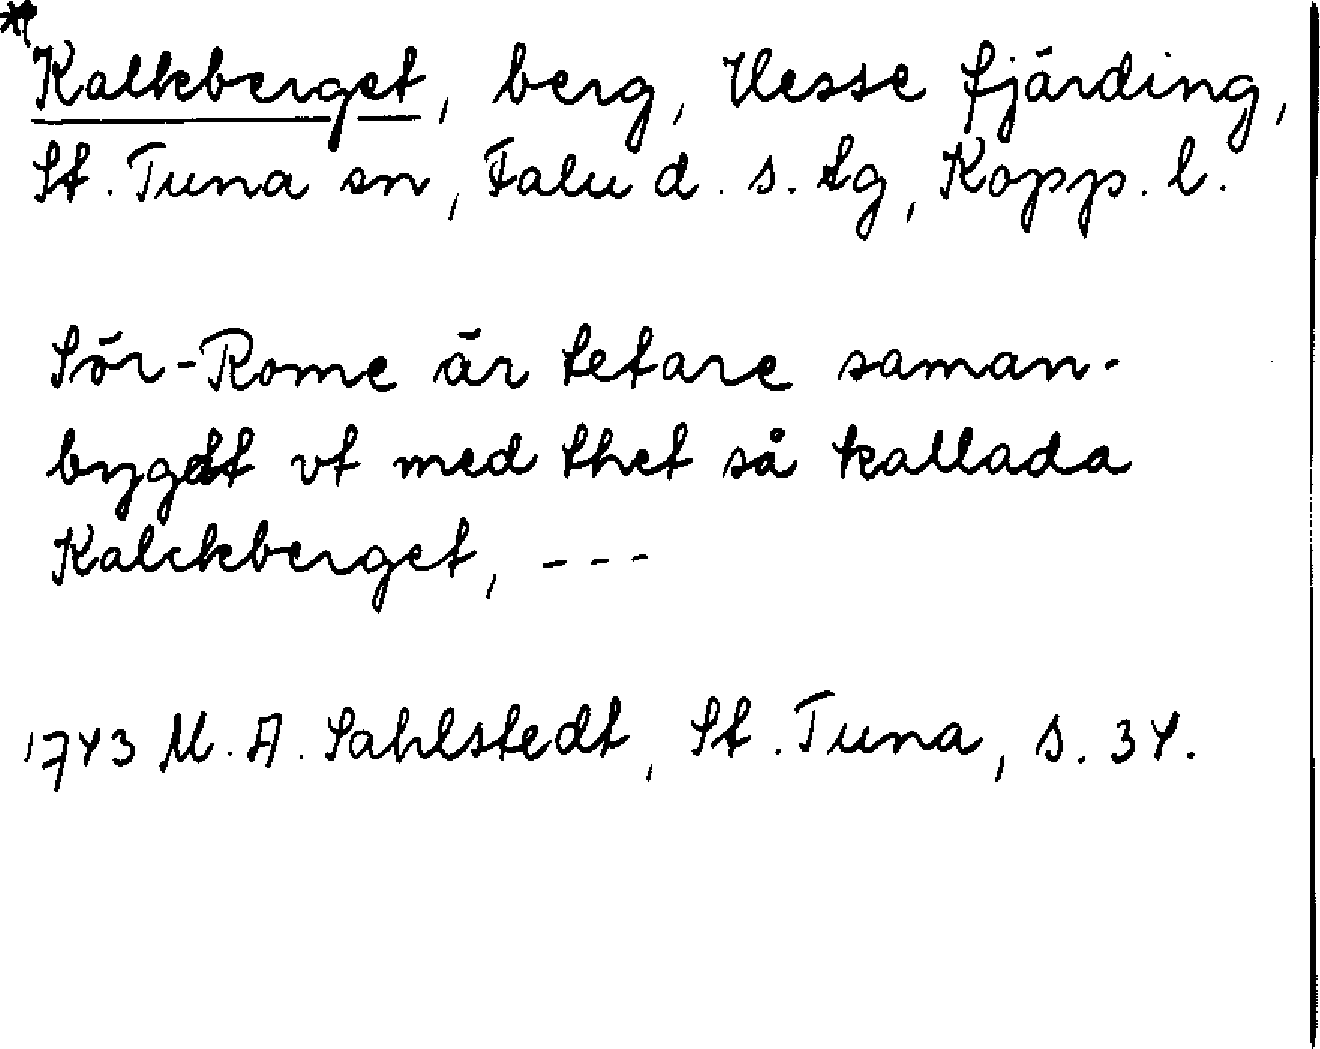 Kalkberget, berg, Hesse fjärding,
St. Tuna sn, Falu d. s. tg, Kopp. l.
Sör-Rome är tetare saman-
bygdt vt med thet så kallada
Kalckberget, ---
1743 M. A. Sahlstedt, St. Tuna, s. 34.